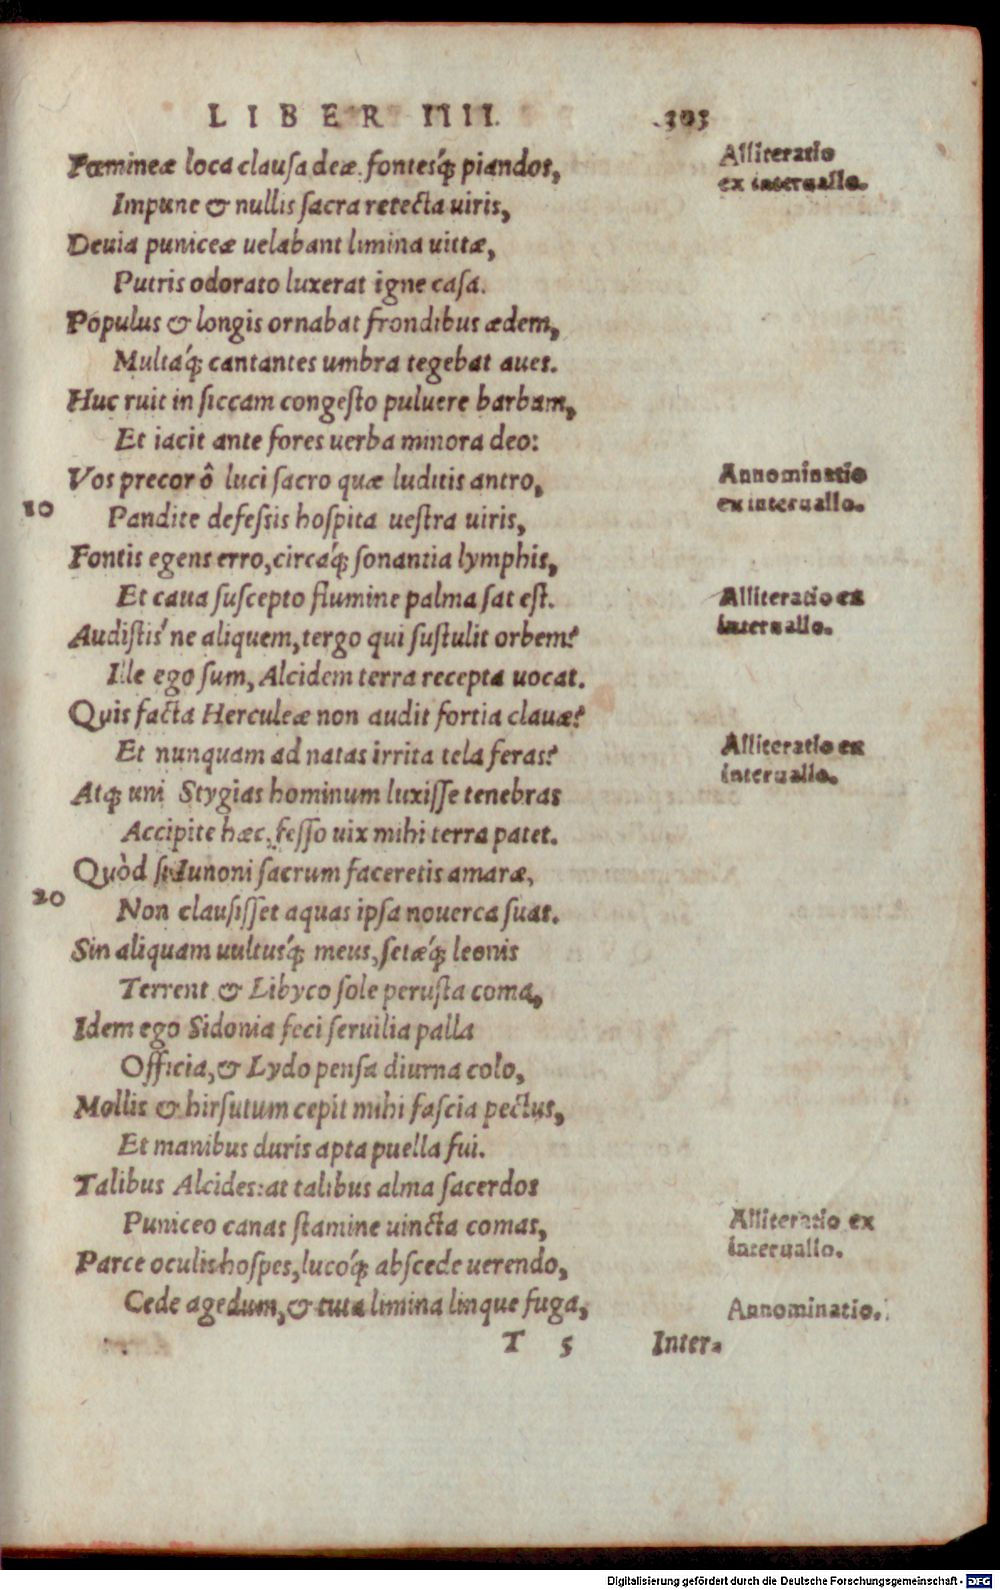 LIBER IIII. 303
Fœmineæ loca clausa deæ. fontesq́; piandos,
Alliteratio
ex interuallo.
Impune & nullis sacra retecta uiris,
Deuia puniceæ uelabant limina uittæ,
Putris odorato luxerat igne casa.
Populus & longis ornabat frondibus ædem,
Multaq́; cantantes umbra tegebat aues.
Huc ruit in siccam congesto puluere barbam,
Et iacit ante fores uerba minora deo:
Vos precor ô luci sacro quæ luditis antro,
Annominatio
ex interuallo.
10 Pandite defessis hospita uestra uiris,
Fontis egens erro, circaq́; sonantia lymphis,
Et caua suscepto flumine palma sat est.
Alliteratio ex
interuallo.
Audistis'ne aliquem, tergo qui sustulit orbem?
Ille ego sum, Alcidem terra recepta uocat.
Quis facta Herculeæ non audit fortia clauæ?
Et nunquam ad natas irrita tela feras?
Alliteratio ex
interuallo.
Atq; uni Stygias hominum luxisse tenebras
Accipite hæc, fesso uix mihi terra patet.
Quòd si Iunoni sacrum faceretis amaræ,
20 Non clausisset aquas ipsa nouerca suas.
Sin aliquam uultusq́; meus, setæq́; leonis
Terrent & Libyco sole perusta coma,
Idem ego Sidonia feci seruilia palla
Officia, & Lydo pensa diurna colo,
Mollis & hirsutum cepit mihi fascia pectus,
Et manibus duris apta puella fui.
Talibus Alcides: at talibus alma sacerdos
Puniceo canas stamine uincta comas,
Alliteratio ex
interuallo.
Parce oculis hospes, lucoq́; abscede uerendo,
Cede agedum, & tuta limina linque fuga,
Annominatio.
T 5 Inter-
Digitalisierung gefördert durch die Deutsche Forschungsgemeinschaft - DFG